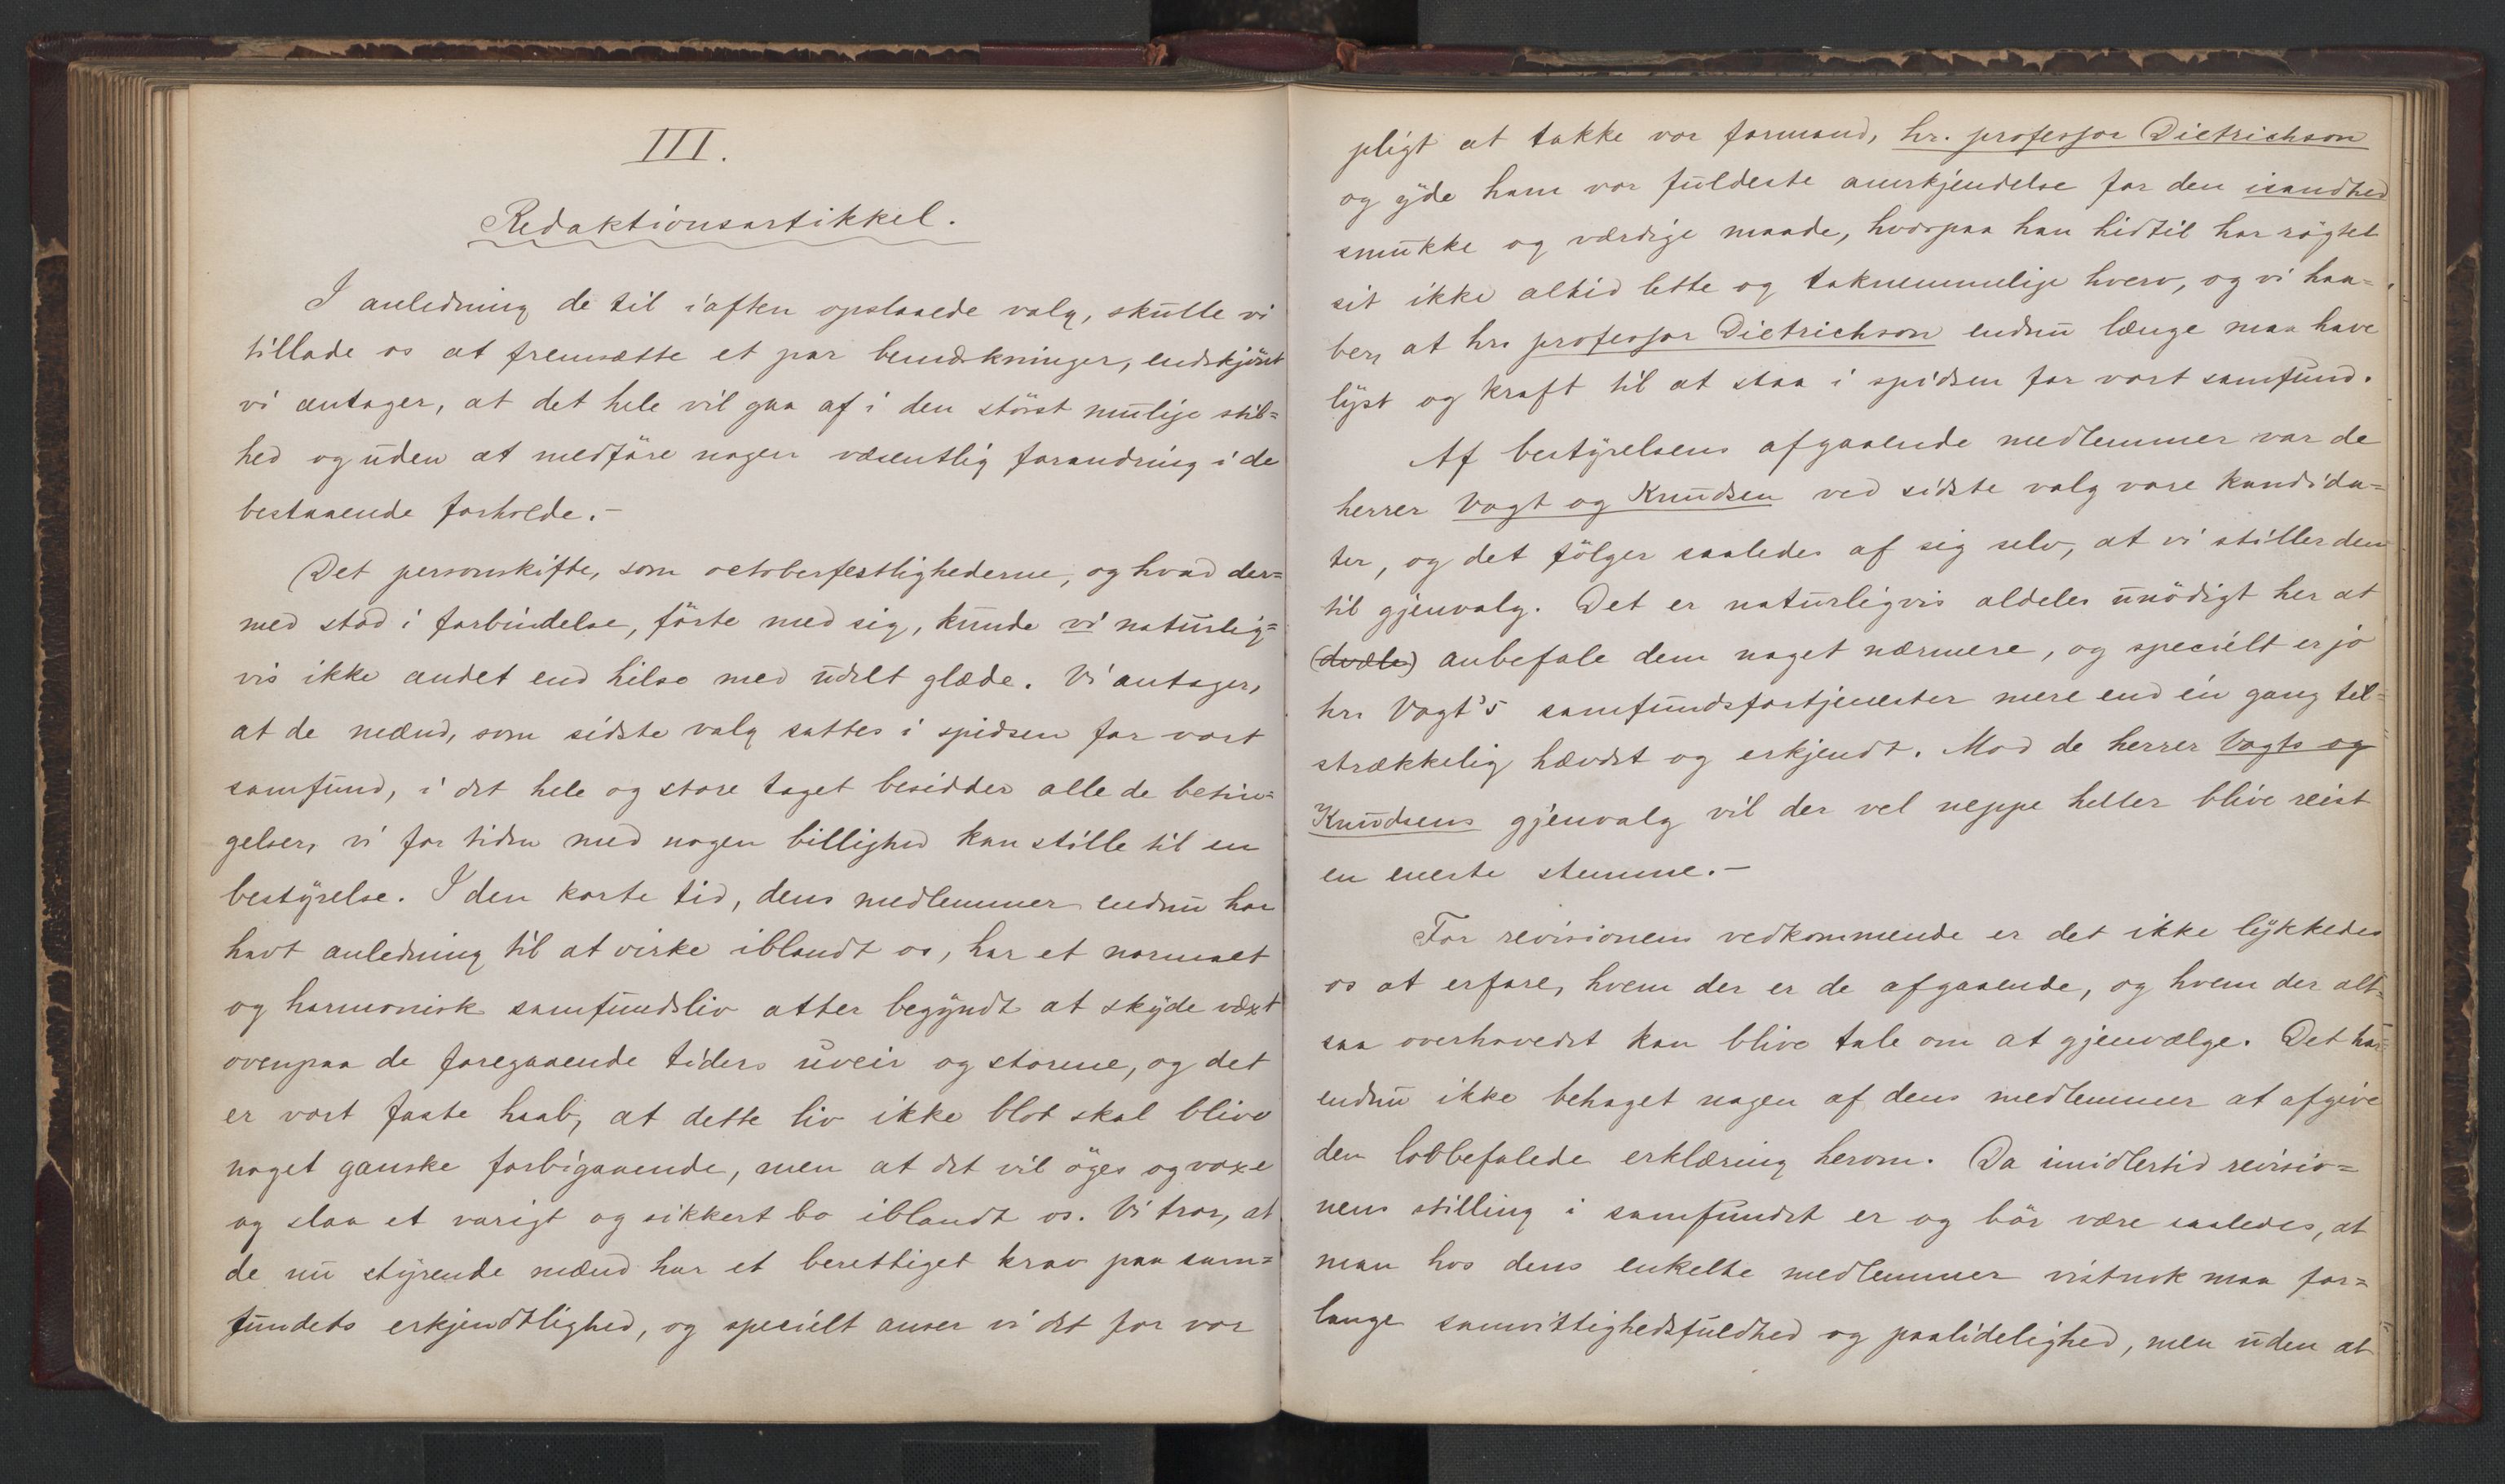 III.
Redaktionsartikkel.
I anledning de til iaften opslaaede valg, skulle vi
tillade os at fremsætte et par bemærkninger, endskjönt
vi antager, at det hele vil gaa af i den störst mulige stil=
hed og uden at medföre nogen væsentlig forandring i de
bestaaende forholde.-
Det personskifte, som octoberfestlighederne, og hvad der=
med stod i forbindelse, förte med sig, kunde vi naturlig=
vis ikke andet end hilse med udelt glæde. Vi antager,
at de mænd, som sidste valg sattes i spidsen for vort
samfund, i det hele og store taget besidder alle de betin=
gelser, vi for tiden med nogen billighed kan stille til en
bestyrelse. I den korte tid, dens medlemmer endnu har
havt anledning til at virke iblandt os, har et normalt
og harmonisk samfundsliv atter begyndt at skyde væxt
ovenpaa de foregaaende tiders uveir og storme, og det
er vort faste haab, at dette liv ikke blot skal blive
noget ganske forbigaaende, men at det vil öges og voxe
og slaa et varigt og sikkert bo iblandt os. Vi tror, at
de nu styrende mænd har et berettiget krav paa sam=
fundets erkjendtlighed, og specielt anser vi det for vor
pligt at takke vor formand, hr. professor Dietrichson
og yde ham vor fuldeste anerkjendelse for den isandhed
smukke og værdige maade, hvorpaa han hidtil har rögtet
sit ikke altid lette og taknemmelige hverv, og vi haa=
ber, at hr. professor Dietrichson endnu længe maa have
lyst og kraft til at staa i spidsen for vort samfund.
Af bestyrelsens afgaaende medlemmer var de
herrer Vogt og Knudsen ved sidste valg vore kandida=
ter, og det fölger saaledes af sig selv, at vi stiller dem
til gjenvalg. Det er naturligvis aldeles unödigt her at
(dvæle) anbefale dem noget nærmere, og specielt er jo
hr. Vogt's samfundsfortjenester mere end én gang til=
strækkelig hævdet og erkjendt. Mod de herrer Vogts og
Knudsens gjenvalg vil der vel neppe heller blive reist
en eneste stemme.-
For revisionens vedkommende er det ikke lykkedes
os at erfare, hvem der er de afgaaende, og hvem der alt=
saa overhovedet kan blive tale om at gjenvælge. Det har
endnu ikke behaget nogen af dens medlemmer at afgive
den lovbefalede erklæring herom. Da imidlertid revisio=
nens stilling i samfundet er og bör være saaledes, at
man hos dens enkelte medlemmer vistnok maa for=
lange samvittighedsfuldhed og paalidelighed, men uden at